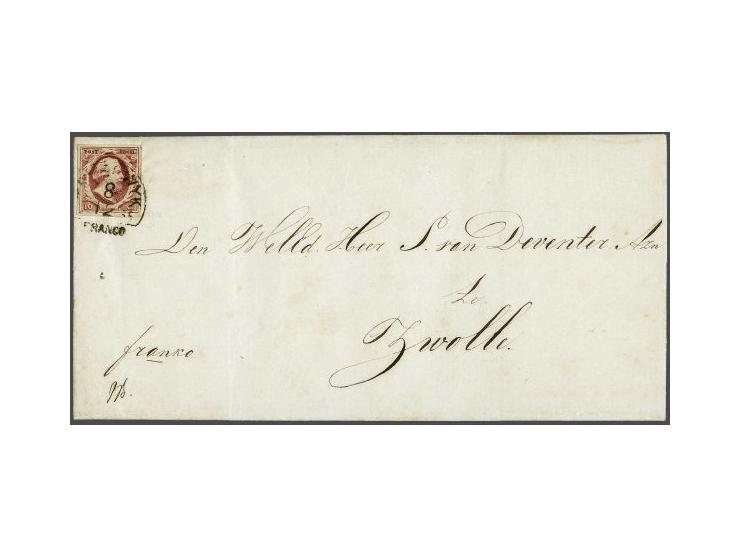 POST ZEGEL
8
10
FRANCO
Den Welld. Heer S. van Deventer Azn
te
Zwolle.
franko